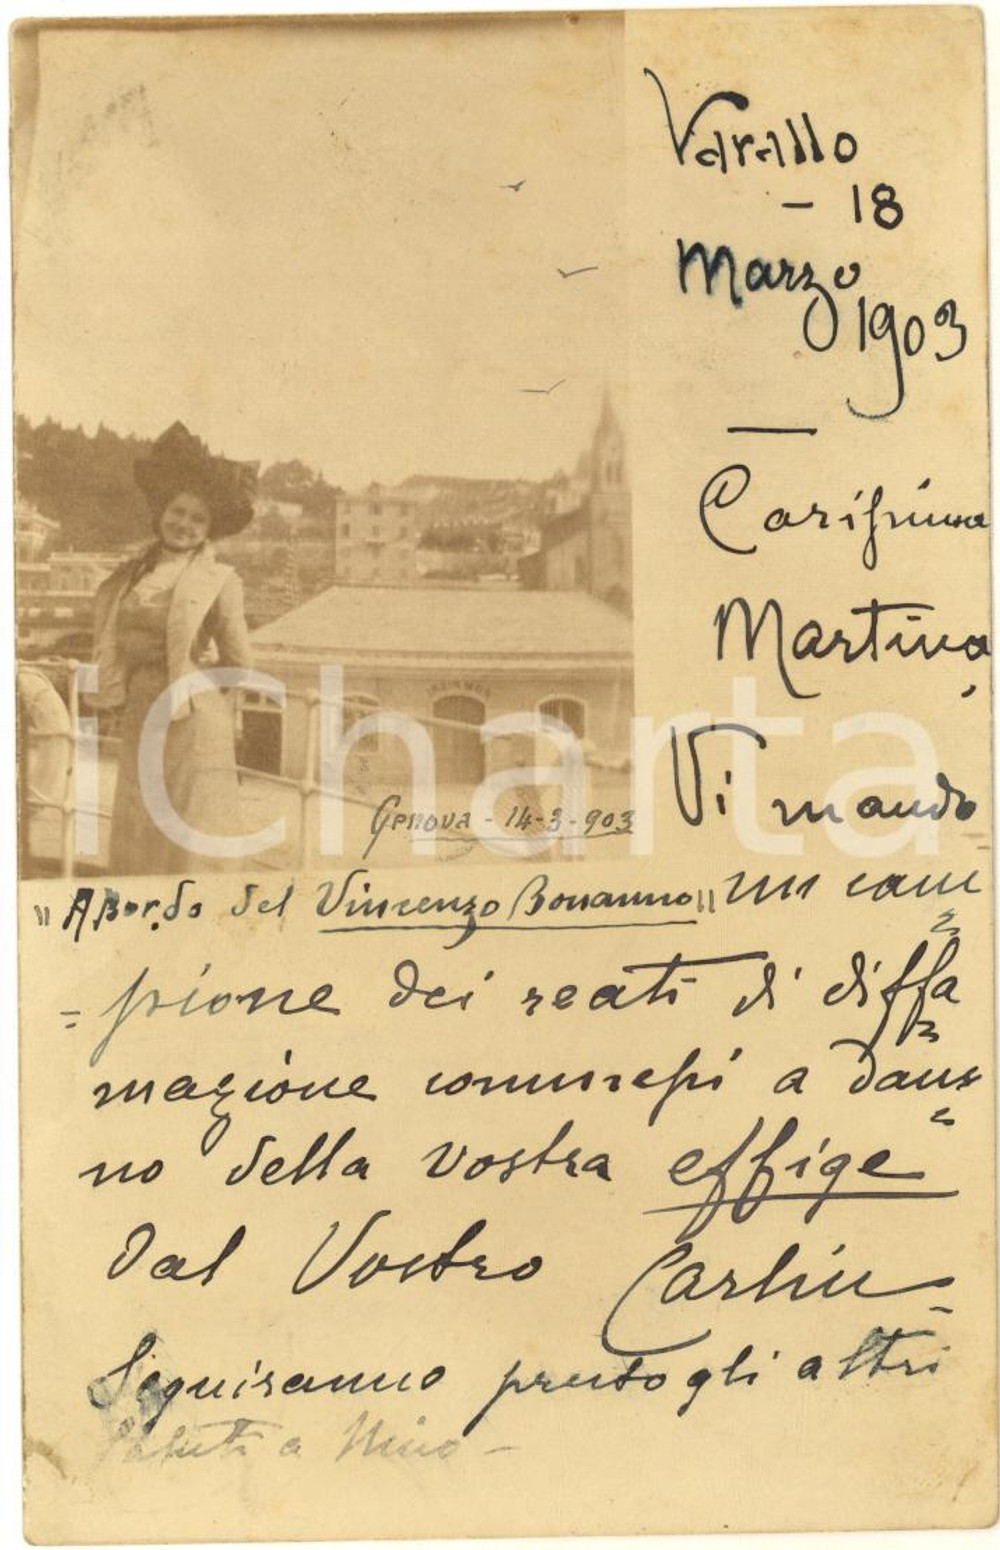 Varallo
- 18
Marzo
1903
Carissima
Martina,
Vi mando
Genova - 14-3-903
"A Bordo del Vincenzo Bonanno" un cam
=pione dei reati di diffa
mazione commessi a dan=
no della vostra effige
dal Vostro Carlin
Seguiranno presto gli altri
Saluti a Nino -
iCharta